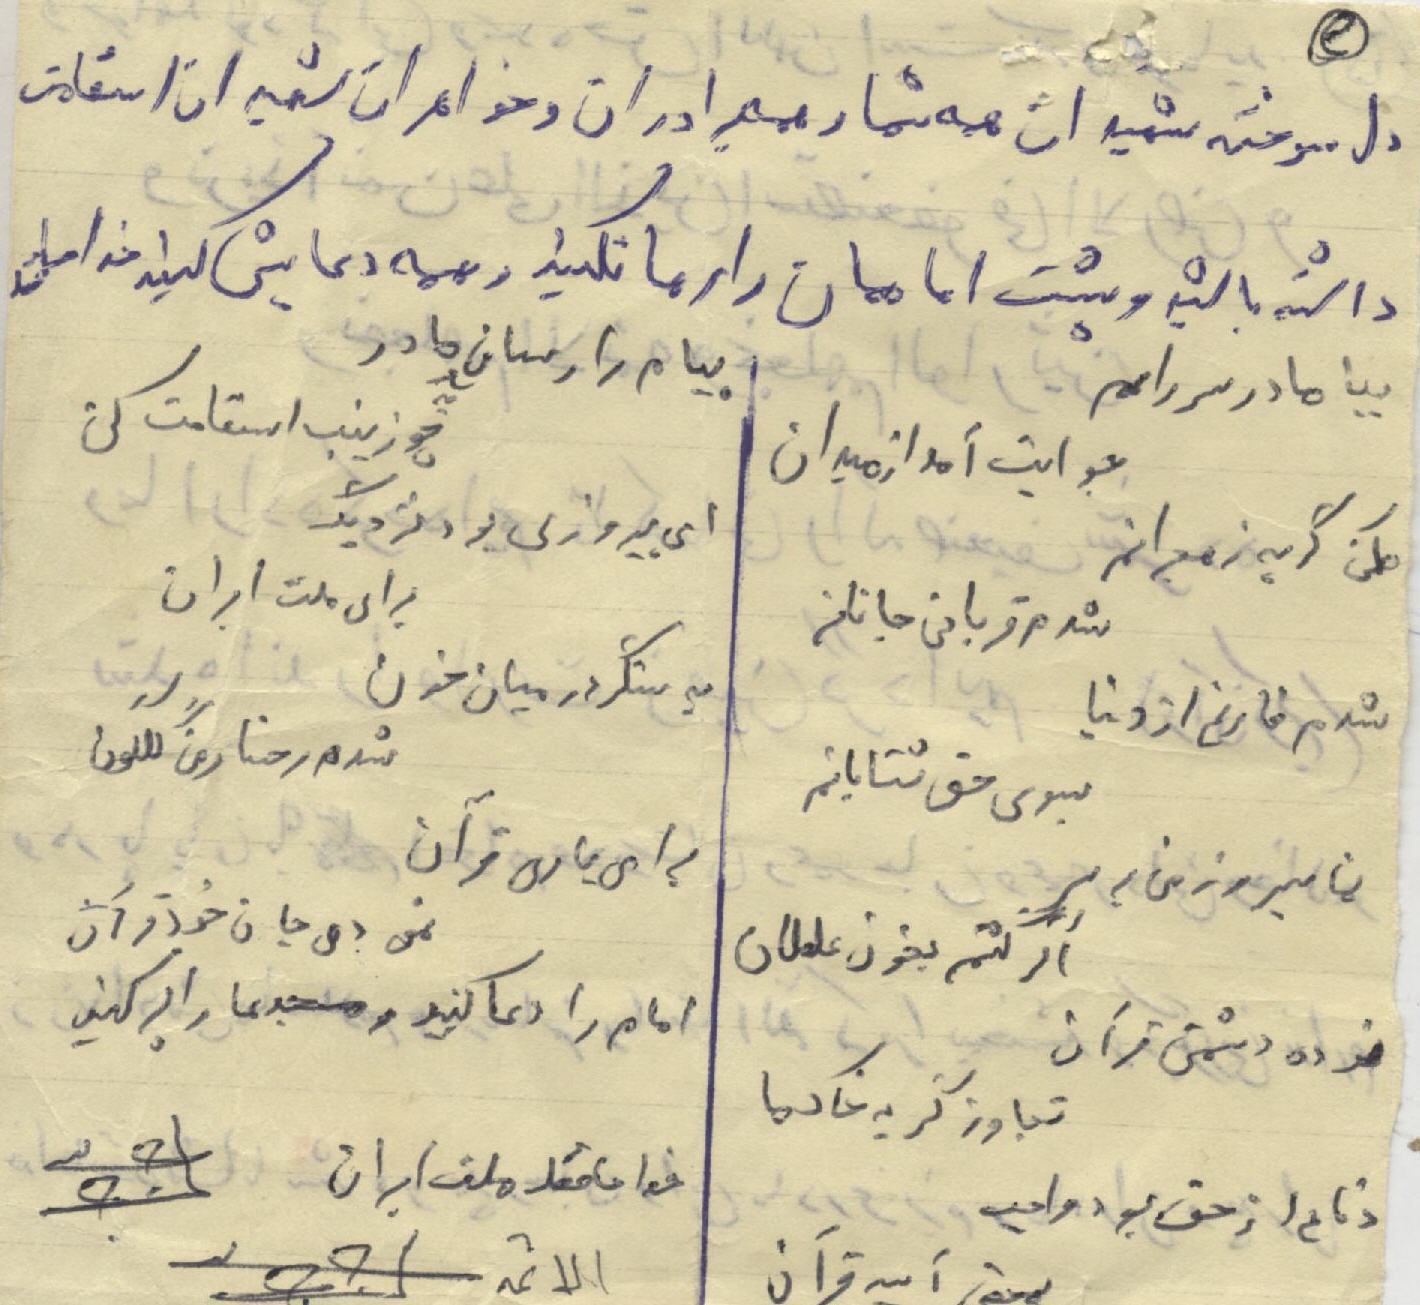 ۲
دل سوخته شهیدان همه شما و همه برادران و خواهران شهیدان استقامت
داشته باشید و پشت امامان را رها نکنید و همه دعایش کنید خدا
بیا مادر سر راهم
جوابت آمد از میدان
مکن گریه ز هجرانم
شدم قربانی جانانم
شدم فارغ از دنیا
بسوی حق شتابانم
اگر گشتم بخون غلطان
دشمن قرآن
تجاوز کرد به خاک ما
دفاع از حق بود واجب
آیه قرآن
پیام را رسان مادر
چو زینب استقامت کن
ای پیروزی بود نزدیک
برای ملت ایران
به سنگر در میان خون
شدم رخسار گلگون
برای یاری قرآن
جان خود قرآن
امام را دعا کنید و مسجدها را پر کنید
خدا حافظ ملت ایران